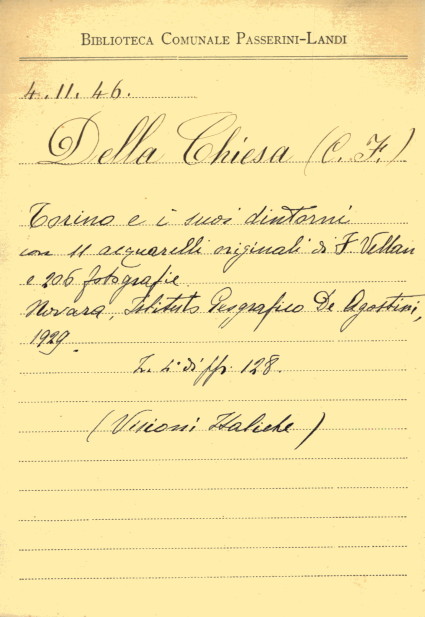 BIBLIOTECA COMUNALE PASSERINI-LANDI
4.11.46.
Della Chiesa (C. F.)
Torino e i suoi dintorni
con 11 acquarelli originali di F. Vellan
e 206 fotografie.
Novara, Istituto Geografico De Agostini,
1929.
4° di pp. 128.
(Visioni Italiche)